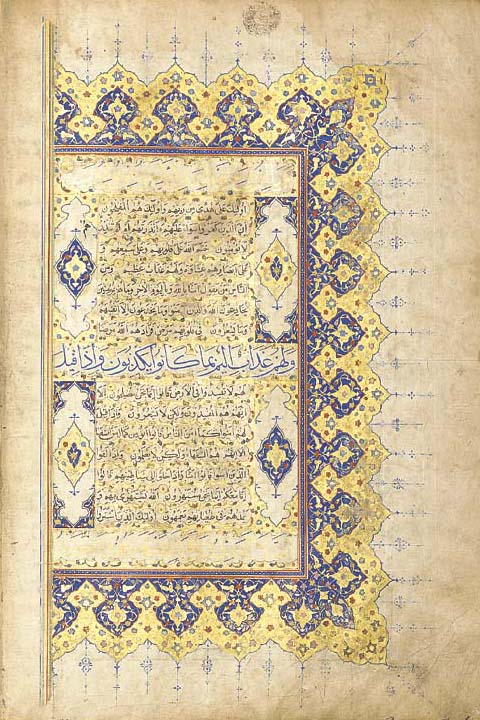 اولئك على هدى من ربهم واولئك هم المفلحون
ان الذين كفروا سواء عليهم ءانذرتهم ام لم تنذرهم
لا يؤمنون ختم الله على قلوبهم وعلى سمعهم و
على ابصارهم غشاوة ولهم عذاب عظيم ومن
الناس من يقول امنا بالله وباليوم الاخر وما هم بمؤمنين
يخادعون الله والذين امنوا وما يخدعون الا انفسهم
وما يشعرون في قلوبهم مرض فزادهم الله مرضا
ولهم عذاب اليم بما كانوا يكذبون واذا قيل
لهم لا تفسدوا في الارض قالوا انما نحن مصلحون الا
انهم هم المفسدون ولكن لا يشعرون واذا قيل
لهم امنوا كما امن الناس قالوا انؤمن كما امن السفهاء
الا انهم هم السفهاء ولكن لا يعلمون واذا لقوا
الذين امنوا قالوا امنا واذا خلوا الى شياطينهم قالوا
انا معكم انما نحن مستهزءون الله يستهزئ بهم و
يمدهم في طغيانهم يعمهون اولئك الذين اشتروا